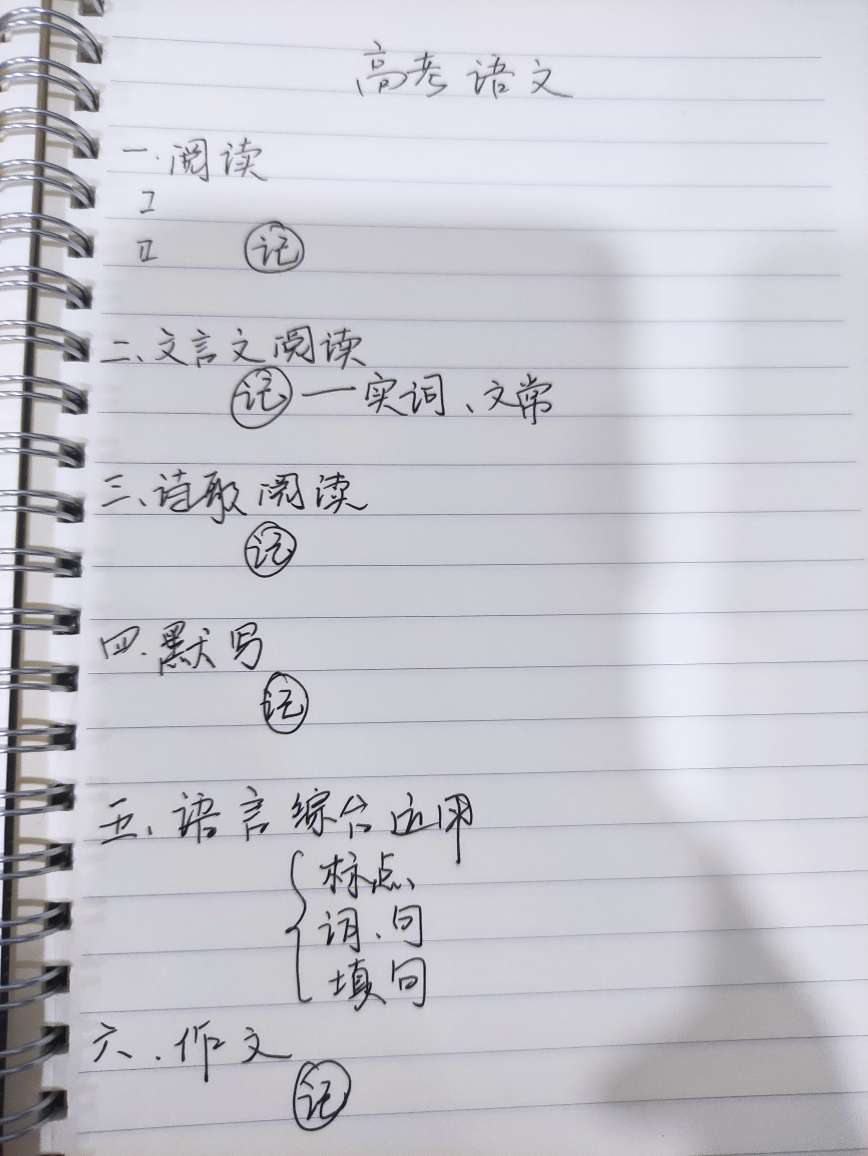 高考语文
一.阅读
I
II 记
二、文言文阅读
记—实词、文常
三、诗歌阅读
记
四.默写
记
五、语言综合应用
标点
词、句
填句
六、作文
记